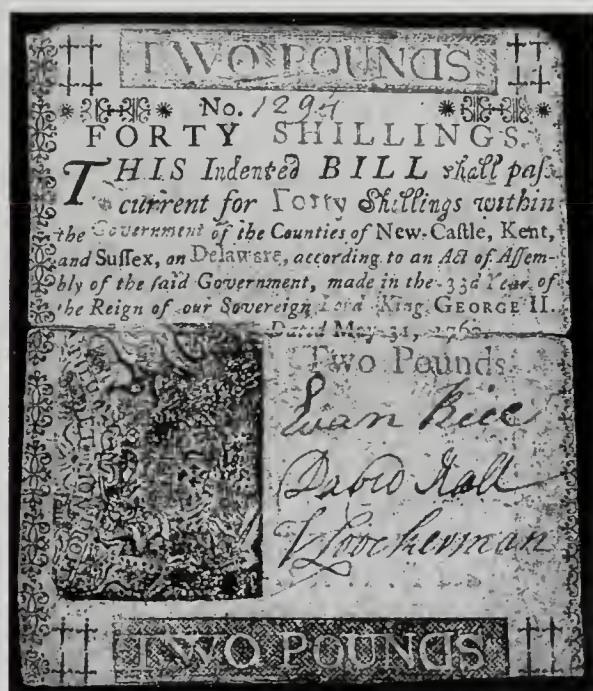 TWO POUNDS
No. 1294
FORTY SHILLINGS.
THIS Indented BILL shall pass
current for Forty Shillings within
the Government of the Counties of New-Castle, Kent,
and Sussex, on Delaware, according to an Act of Assem-
bly of the said Government, made in the 33d Year of
the Reign of our Sovereign Lord King GEORGE II.
Dated May 31, 1760.
Two Pounds.
Evan Rice
David Hall
V Loockerman
TWO POUNDS